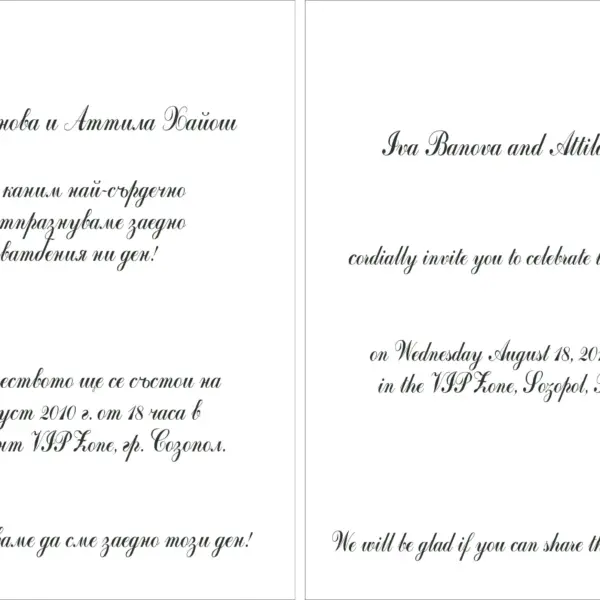 нова и Аттила Хайош
каним най-сърдечно
тпразнуваме заедно
ватбения ни ден!
еството ще се състои на
уст 2010 г. от 18 часа в
нт VIP Zone, гр. Созопол.
ваме да сме заедно този ден!
Iva Banova and Attil
cordially invite you to celebrate
on Wednesday August 18, 20
in the VIP Zone, Sozopol,
We will be glad if you can share th